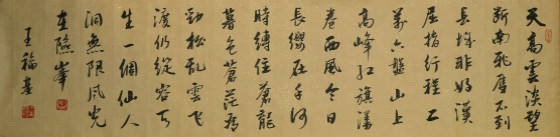 天高雲淡望
断南飛雁不到
長城非好漢
屈指行程二
萬六盤山上
高峰紅旗漫
卷西風今日
長纓在手何
時縛住蒼龍
暮色蒼茫看
勁松乱雲飛
渡仍從容天
生一個仙人
洞無限风光
在險峰
王福喜